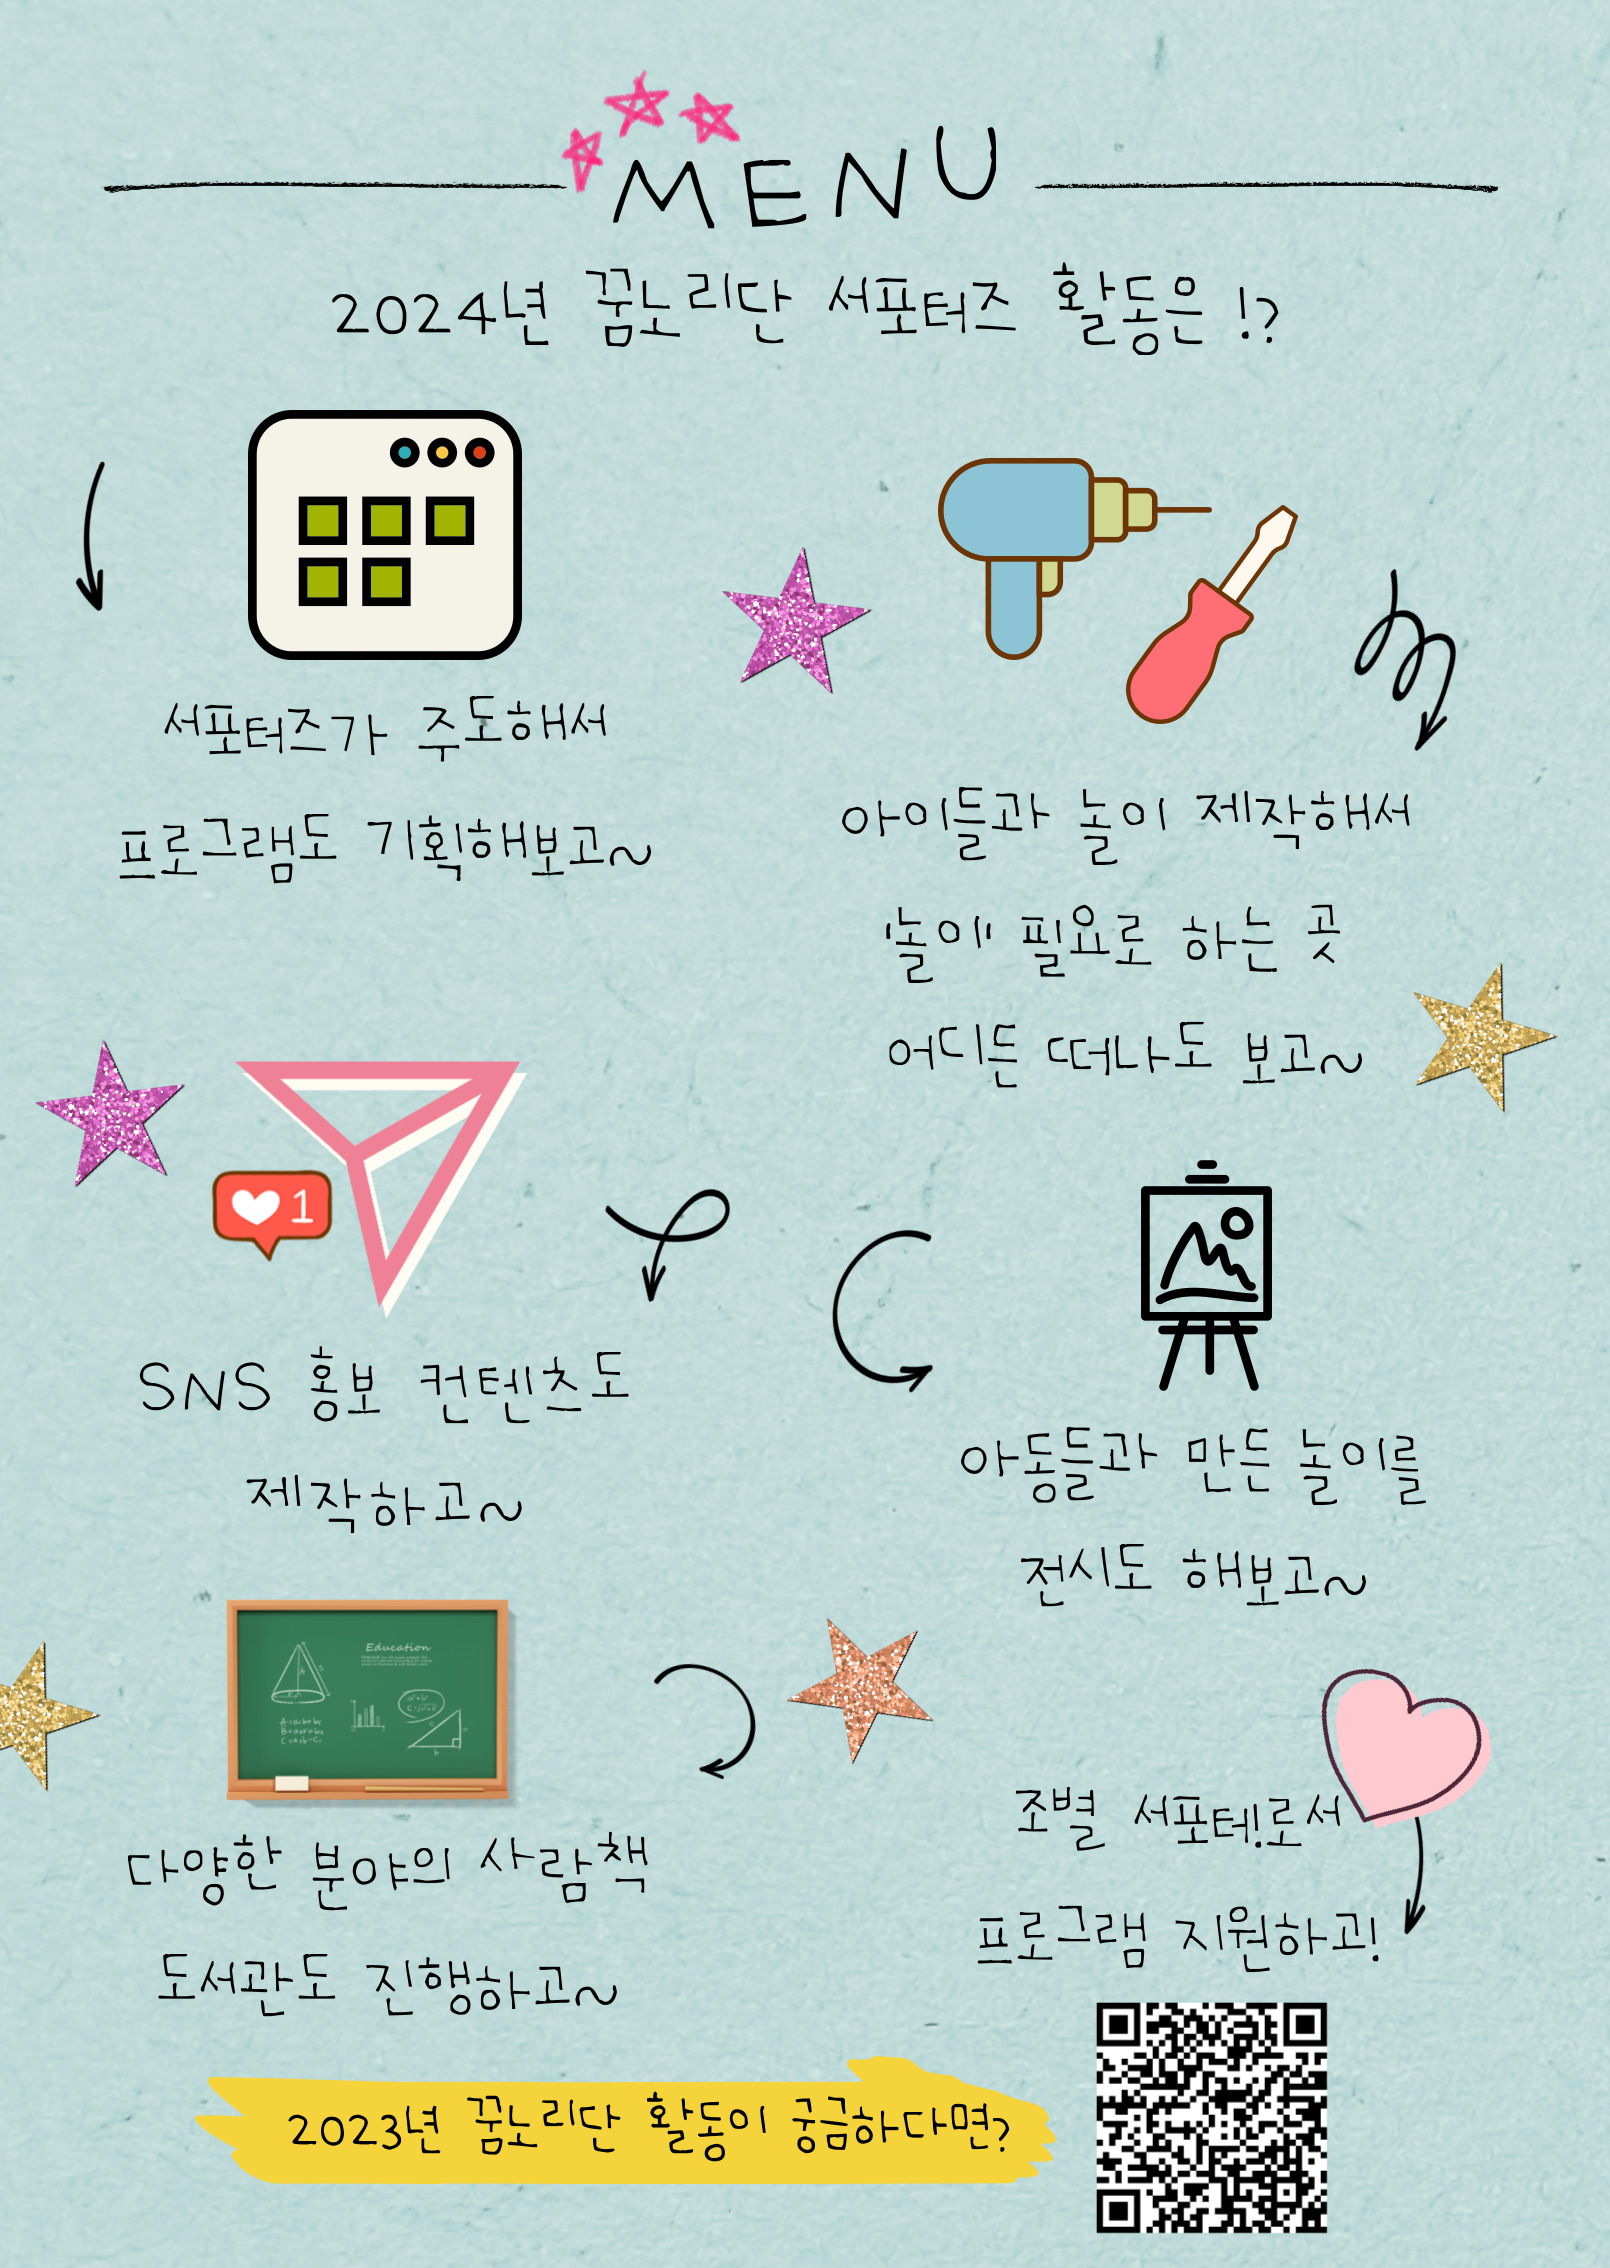 MENU
2024년 꿈노리단 서포터즈 활동은!?
서포터즈가 주도해서
프로그램도 기획해보고~
아이들과 놀이 제작해서
'놀이' 필요로 하는 곳
어디든 떠나도 보고~
1
SNS 홍보 컨텐츠도
제작하고~
아동들과 만든 놀이를
전시도 해보고~
Education
다양한 분야의 사람책
도서관도 진행하고~
조별 서포터!로서
프로그램 지원하고!
2023년 꿈노리단 활동이 궁금하다면?